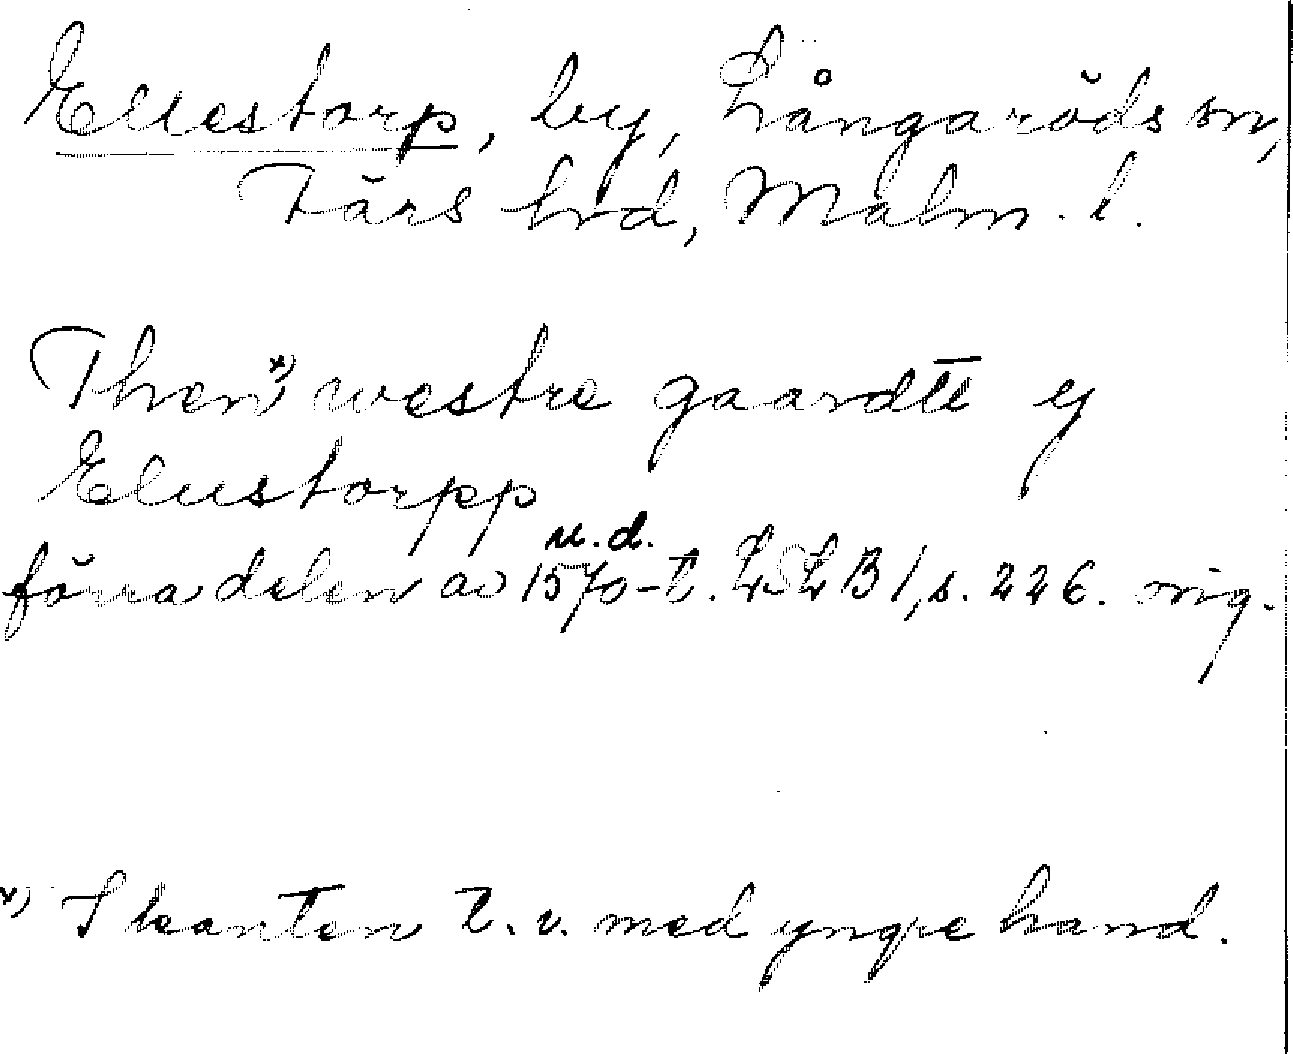 Ellestorp, by, Långaröds sn,
Färs hrd, Malm. l.
Then *) westre gaardtt ij
Elustorpp
u.d.
förra delen av 1570-t. LSLB 1, s. 226. orig.
*) I kanten t. v. med yngre hand.